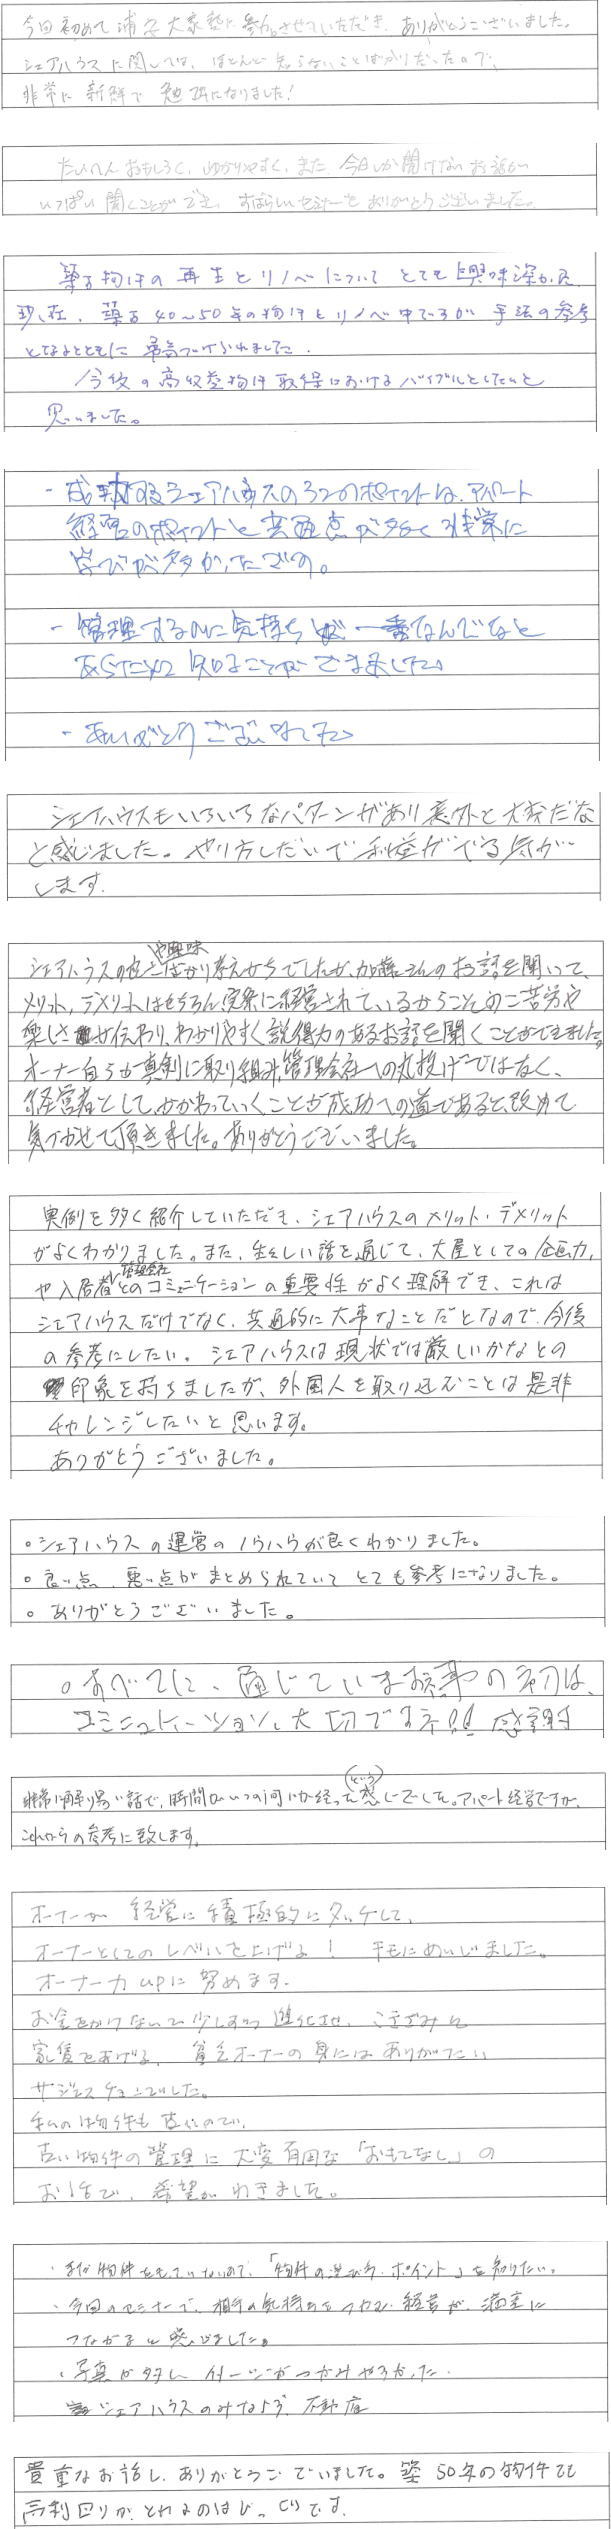 今回初めて浦安大家塾に参加させていただき、ありがとうございました。
シェアハウスに関しては、ほとんど知らないことばかりだったので、
非常に新鮮で勉強になりました!
たいへんおもしろく、わかりやすく、また、今日しか聞けないお話が
いっぱい聞くことができ、すばらしいセミナーをありがとうございました。
築古物件の再生とリノベについてとても興味深かった
現在、築古40~50年の物件をリノベ中ですが手法の参考
となるとともに勇気づけられました.
今後の高収益物件取得におけるバイブルとしたいと
思いました。
- 成功するシェアハウスの32のポイントは、アパート
経営のポイントと共通点が多く非常に
学びが多かったです。
- 管理するのに気持ちが一番なんだなと
あらためて知ることができました
- ありがとうございました
シェアハウスもいろいろなパターンがあり意外と大変だな
と感じました。やり方しだいで利益がでる気が
します.
シェアハウスの色々や興味ばかり考えがちでしたが、加藤さんのお話を聞いて、
メリット、デメリットはもちろん実際に経営されているからこそのご苦労や
楽しさも伝わり、わかりやすく説得力のあるお話を聞くことができました。
オーナー自らが真剣に取り組み、管理会社への丸投げではなく、
経営者としてかかわっていくことが成功への道であると、改めて
気づかせて頂きました。ありがとうございました。
実例を多く紹介していただき、シェアハウスのメリット・デメリット
がよくわかりました。また、生々しい話を通じて、大屋としての企画力、
や入居者、管理会社とのコミュニケーションの重要性がよく理解でき、これは
シェアハウスだけでなく、共通的に大事なことだとなので、今後
の参考にしたい。シェアハウスは現状では厳しいかなとの
印象を持ちましたが、外国人を取り込むことは是非
チャレンジしたいと思います。
ありがとうございました。
○シェアハウスの運営のノウハウが良くわかりました。
○良い点、悪い点がまとめられていてとても参考になりました。
○ありがとうございました。
○すべてに、通じていますネ事の初は、
コミニュケーション、大切ですネ!! 感謝
非常に解り易い話で、時間がいつの間にか経ったという感じでした。アパート経営ですが、
これからの参考に致します。
オーナーが経営に積極的にタッチして、
オーナーとしてのレベルを上げよ! キモにめいじました。
オーナー力upに努めます.
お金をかけないで少しずつ進化させ、こきざみに
家賃をあげる、貧乏オーナーの身にはありがたい
サジェスチョンでした。
私の物件も古いので、
古い物件の管理に大変有用な「おもてなし」の
お話で、希望がわきました。
・まだ物件をもっていないので、「物件の選び方・ポイント」を知りたい。
・今回のセミナーで、相手の気持ちをつかむ経営が、満室に
つながると感じました。
・写真が多くイメージがつかみやすかった.
シェアハウスのみならず、不動産
貴重なお話し、ありがとうございました。築50年の物件でも
高利回りがとれるのはびっくりです.